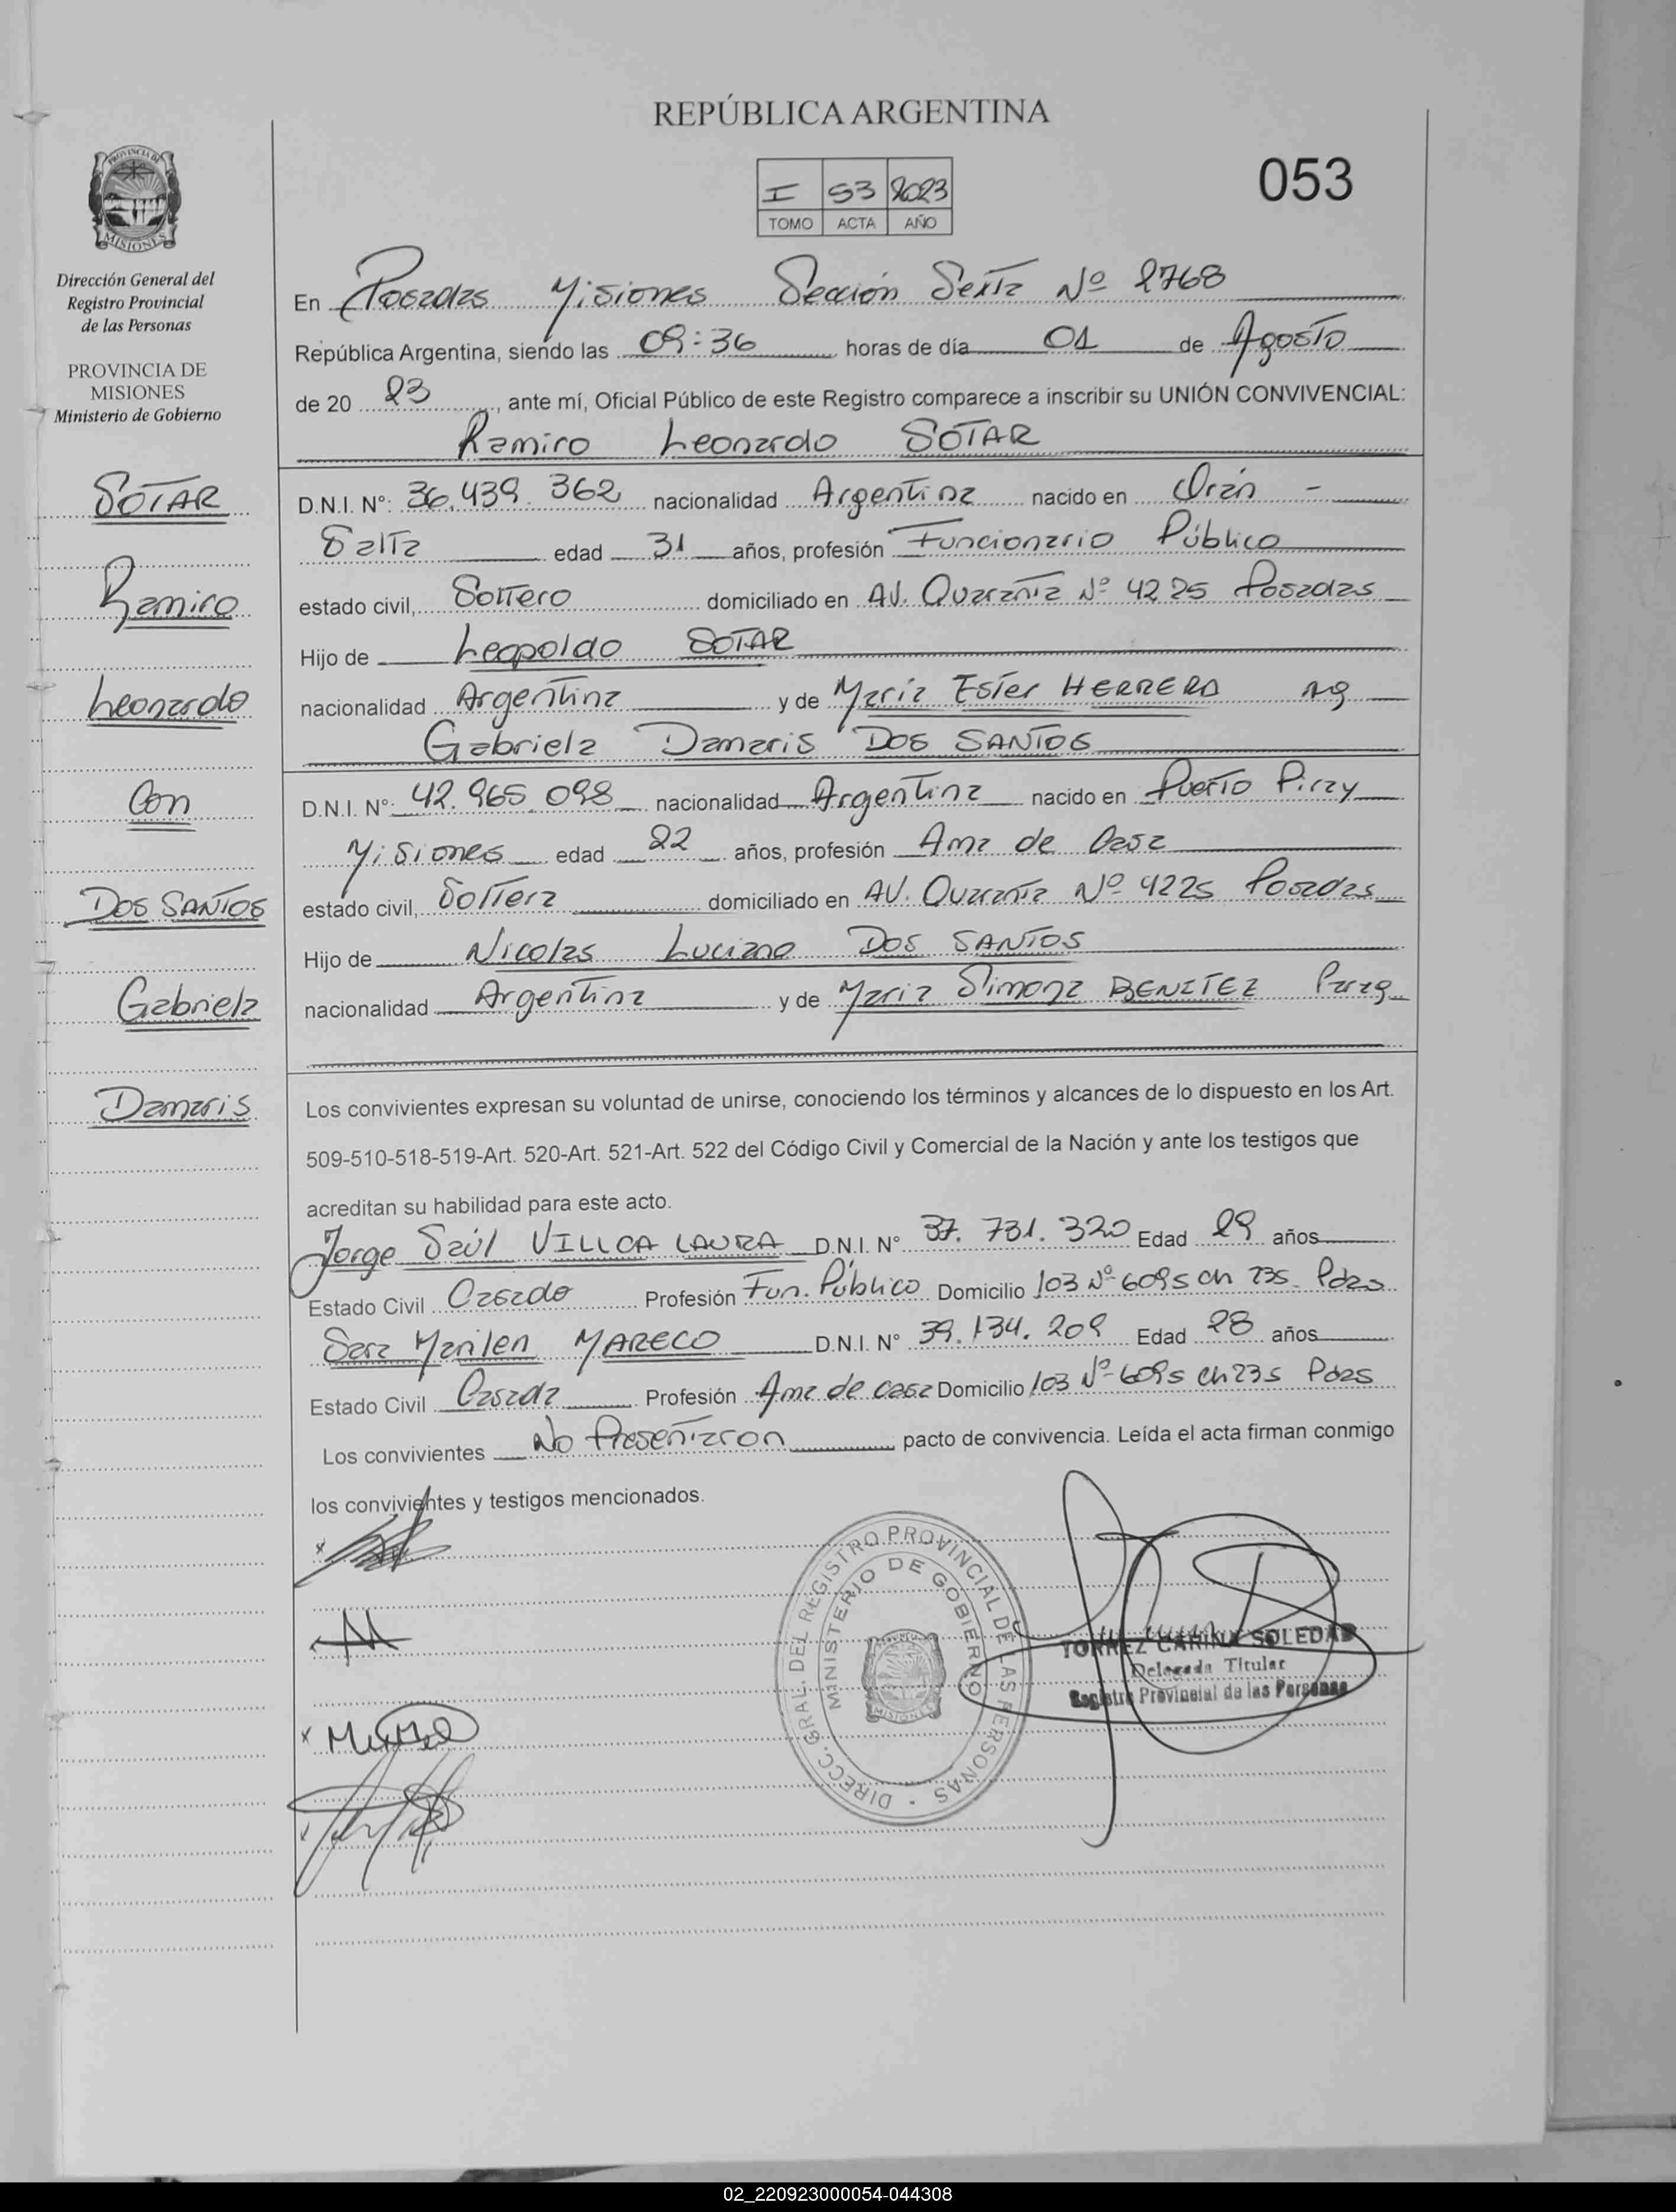 REPÚBLICA ARGENTINA
I 53 2023
TOMO ACTA AÑO
053
PROVINCIA DE
MISIONES
Dirección General del
Registro Provincial
de las Personas
PROVINCIA DE
MISIONES
Ministerio de Gobierno
SOTAR
Ramiro
Leonardo
Con
DOS SANTOS
Gabriela
Damaris
En Posadas Misiones Sección Sexta Nº 2768
República Argentina, siendo las 09:36 horas de día 01 de Agosto
de 20 23, ante mí, Oficial Público de este Registro comparece a inscribir su UNIÓN CONVIVENCIAL:
Ramiro Leonardo SOTAR
D.N.I. Nº: 36.439.362 nacionalidad Argentina nacido en Orán -
Salta edad 31 años, profesión Funcionario Público
estado civil, Soltero domiciliado en AV. Quaranta Nº 4225 Posadas
Hijo de Leopoldo SOTAR
nacionalidad Argentina y de Maria Ester HERRERA Ag
Gabriela Damaris DOS SANTOS
D.N.I. Nº: 42.965.098 nacionalidad Argentina nacido en Puerto Piray
Misiones edad 22 años, profesión Ama de Casa
estado civil, Soltera domiciliado en AV. Quaranta Nº 4225 Posadas
Hijo de Nicolas Luciano DOS SANTOS
nacionalidad Argentina y de Maria Simona BENITEZ Parag
Los convivientes expresan su voluntad de unirse, conociendo los términos y alcances de lo dispuesto en los Art.
509-510-518-519-Art. 520-Art. 521-Art. 522 del Código Civil y Comercial de la Nación y ante los testigos que
acreditan su habilidad para este acto.
Jorge Saúl VILLCA LAURA D.N.I. Nº 37.731.320 Edad 29 años
Estado Civil Casado Profesión Fun. Público Domicilio 103 Nº 6095 ch 235 Pdas
Sara Marilen MARECO D.N.I. Nº 39.134.209 Edad 28 años
Estado Civil Casada Profesión Ama de casa Domicilio 103 Nº 6095 ch 235 Pdas
Los convivientes No Presentaron pacto de convivencia. Leída el acta firman conmigo
los convivientes y testigos mencionados.
DIRECC. GRAL. DEL REGISTRO PROVINCIAL DE LAS PERSONAS
MINISTERIO DE GOBIERNO
MISIONES
TORREZ CARINA SOLEDAD
Delegada Titular
Registro Provincial de las Personas
02_220923000054-044308